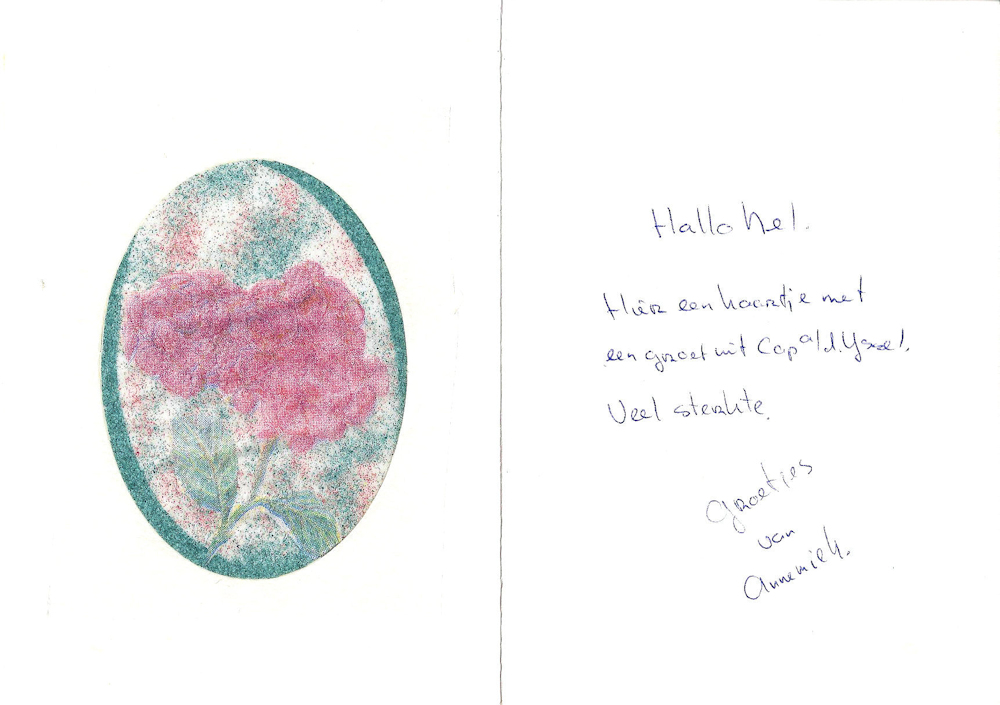 Hallo Nel.
Hier een kaartje met
een groet uit Cap a/d. Yssel.
Veel sterkte.
Groetjes
van
Annemiek.